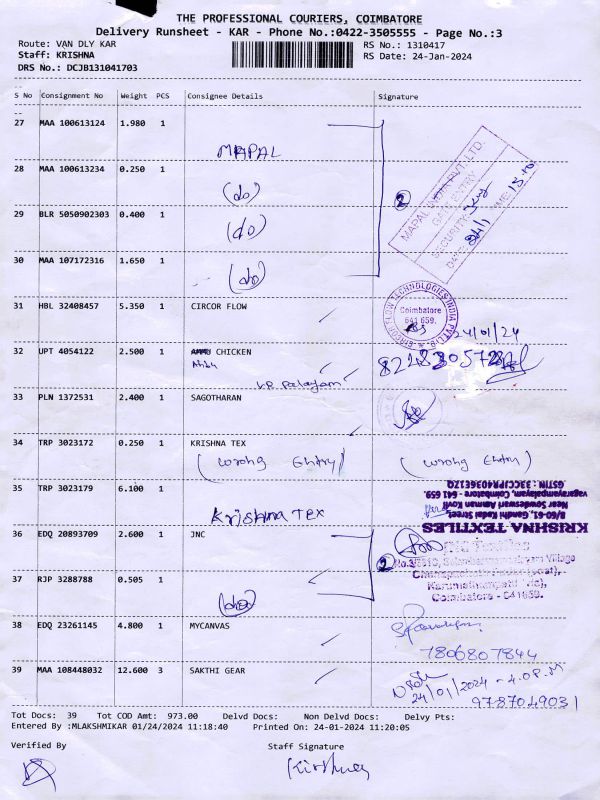 THE PROFESSIONAL COURIERS, COIMBATORE
Delivery Runsheet - KAR - Phone No.:0422-3505555 - Page No.:3
Route: VAN DLY KAR RS No.: 1310417
Staff: KRISHNA RS Date: 24-Jan-2024
DRS No.: DCJB131041703
S No Consignment No Weight PCS Consignee Details Signature
27 MAA 100613124 1.980 1
MAPAL
28 MAA 100613234 0.250 1
(do)
29 BLR 5050902303 0.400 1
(do)
30 MAA 107172316 1.650 1
(do)
2
MAPAL INDIA PVT. LTD.
GATE ENTRY
SECURITY:
DATE: 24/1 TIME: 13
31 HBL 32408457 5.350 1 CIRCOR FLOW
CIRCOR FLOW TECHNOLOGIES INDIA PVT. LTD.
Coimbatore
641 659.
24/01/24
32 UPT 4054122 2.500 1 CHICKEN
V.P. Palayam
33 PLN 1372531 2.400 1 SAGOTHARAN
34 TRP 3023172 0.250 1 KRISHNA TEX
(wrong Entry) (wrong Entry)
35 TRP 3023179 6.100 1
Krishna Tex
KRISHNA TEXTILES
8/60-61, Gandhi Kadai Street,
Near Sowdeswari Amman Kovil
vagarayampalayam, Coimbatore - 641 659.
GSTIN : 33CCCPR4036E1ZQ
36 EDQ 20893709 2.600 1 JNC
37 RJP 3288788 0.505 1
(do)
2
Coimbatore - 641659.
38 EDQ 23261145 4.800 1 MYCANVAS
7806807844
39 MAA 108448032 12.600 3 SAKTHI GEAR
24/01/2024 - 4.08.M
9787049031
Tot Docs: 39 Tot COD Amt: 973.00 Delvd Docs: Non Delvd Docs: Delvy Pts:
Entered By :MLAKSHMIKAR 01/24/2024 11:18:40 Printed On: 24-01-2024 11:20:05
Verified By Staff Signature
Krishna